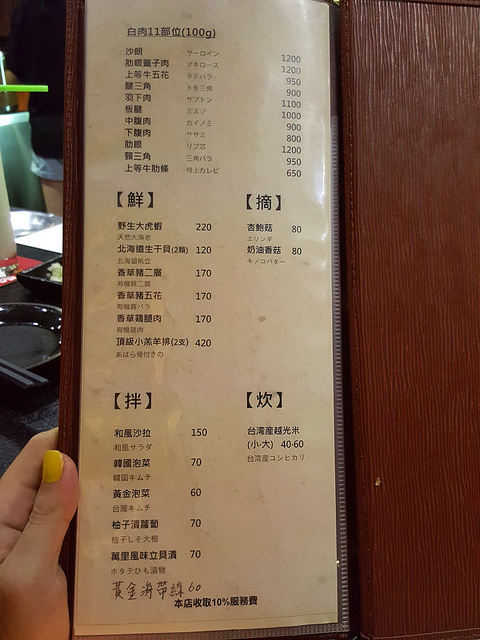 白肉11部位(100g)
沙朗 サーロイン 1200
肋眼蓋子肉 マキロース 1200
上等牛五花 タテバラ 950
腿三角 トモ三角 900
羽下肉 ザブトン 1100
板腱 ミスジ 1000
中腹肉 カイノミ 900
下腹肉 ササミ 800
肋眼 リブ芯 1200
頸三角 三角バラ 950
上等牛肋條 特上カルビ 650
【鮮】
野生大虎蝦 220
天然大海老
北海道生干貝(2顆) 120
北海道帆立
香草豬二層 170
有機豚二層
香草豬五花 170
有機豚バラ
香草雞腿肉 170
有機雞肉
頂級小羔羊排(2支) 420
あばら骨付きの
【摘】
杏鮑菇 80
エリンギ
奶油香菇 80
キノコバター
【拌】
和風沙拉 150
和風サラダ
韓國泡菜 70
韓国キムチ
黃金泡菜 60
台灣キムチ
柚子漬蘿蔔 70
柚子しそ大根
萬里風味立貝漬 70
ホタテひも漬物
黃金海帶絲 60
【炊】
台湾産越光米
(小·大) 40·60
台湾産コシヒカリ
本店收取10%服務費